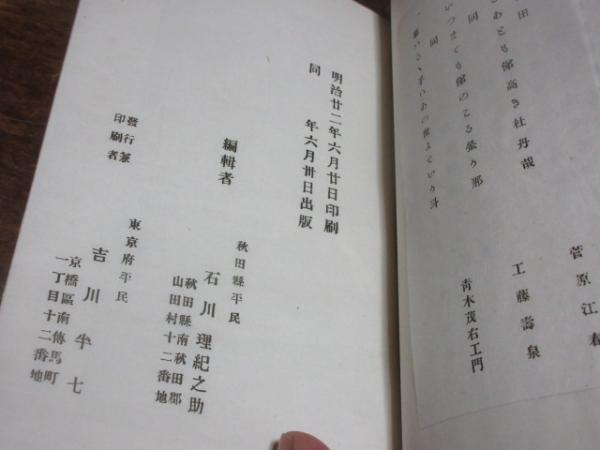 田
あとも俤高き牡丹哉
菅原江春
同
いつまても俤のこる曇り那
工藤壽泉
同
青木茂右エ門
明治廿二年六月廿日印刷
同　　　年六月卅日出版
編輯者
秋田縣平民
石川理紀之助
秋田縣南秋田郡
山田村十二番地
發行兼
印刷者
東京府平民
吉川半七
京橋區南傳馬町
一丁目十二番地